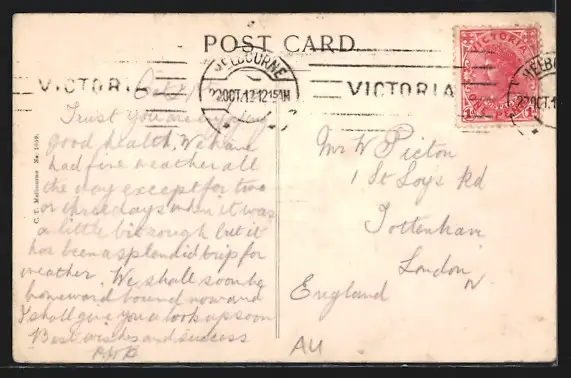 POST CARD
VICTORIA
MELBOURNE
22 OCT. 12 12 15 PM
VICTORIA
VICTORIA
MELB
22 OCT. 1
Trust you are enjoying
good health. We have
had fine weather all
the day except for two
or three days when it was
a little bit rough but it
has been a splendid trip for
weather. We shall soon be
homeward bound now and
I shall give you a look up soon
Best wishes and success
Mr W Picton
1 St Loys Rd
Tottenham
London
N
England
AU
C. T. Melbourne No.